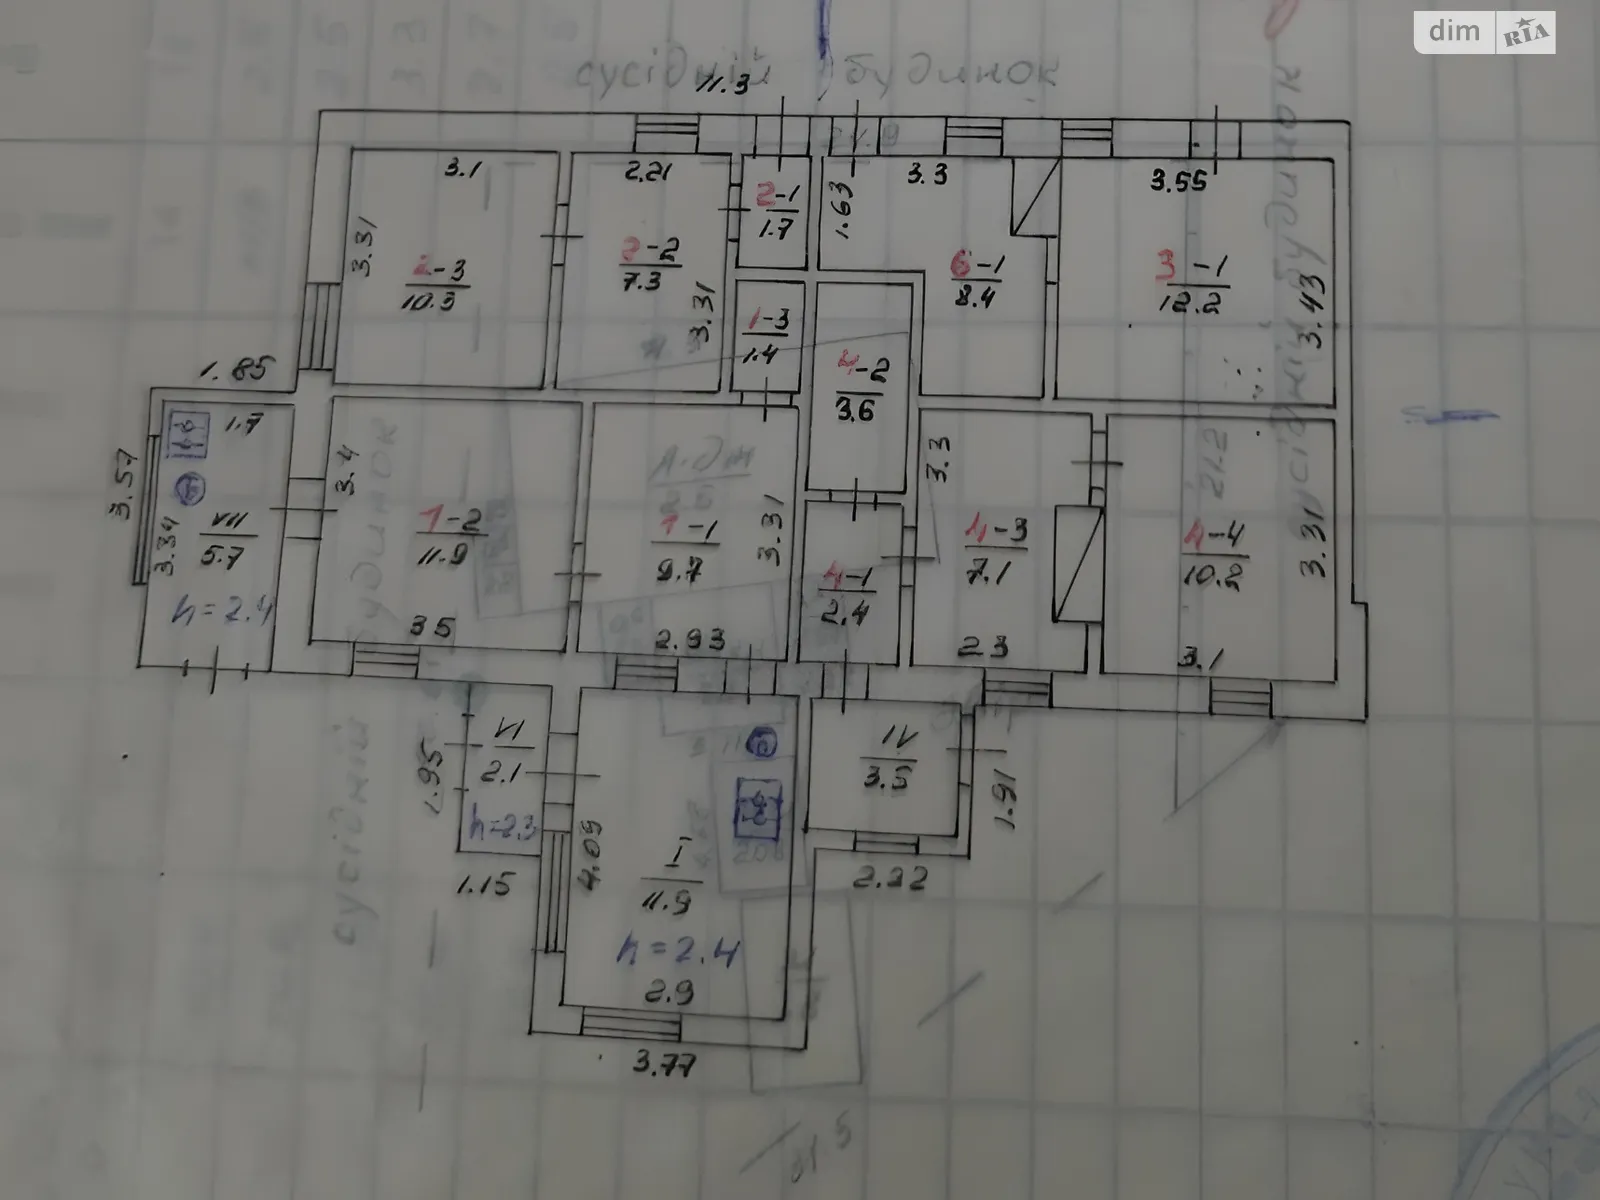 dim RIA
сусідній будинок
11.3
3.1
2.21
3.3
3.55
2-1
1.7
1.63
3.31
2-3
10.3
2-2
7.3
3.31
6-1
8.4
3-1
12.2
3.43
сусідній будинок
1-3
1.4
4-2
3.6
1.85
1.7
3.57
3.34
VII
5.7
h=2.4
3.4
1-2
11.9
35
А-дж
1-1
9.7
3.31
2.93
4-1
2.4
3.3
4-3
7.1
23
4-4
10.2
3.31
3.1
21.2
сусідній будинок
VI
2.1
h=2.3
1.95
1.15
4.09
I
11.9
h=2.4
2.9
3.77
IV
3.5
1.91
2.22